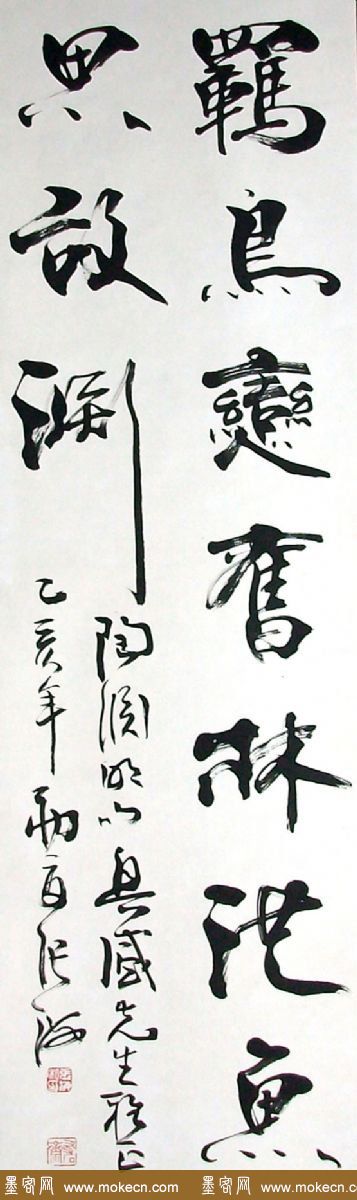 羈鳥戀舊林池魚
思故淵
陶淵明句 先生雅正
乙亥年 張海
墨客网 www.mokecn.com 墨客网 www.mokecn.com